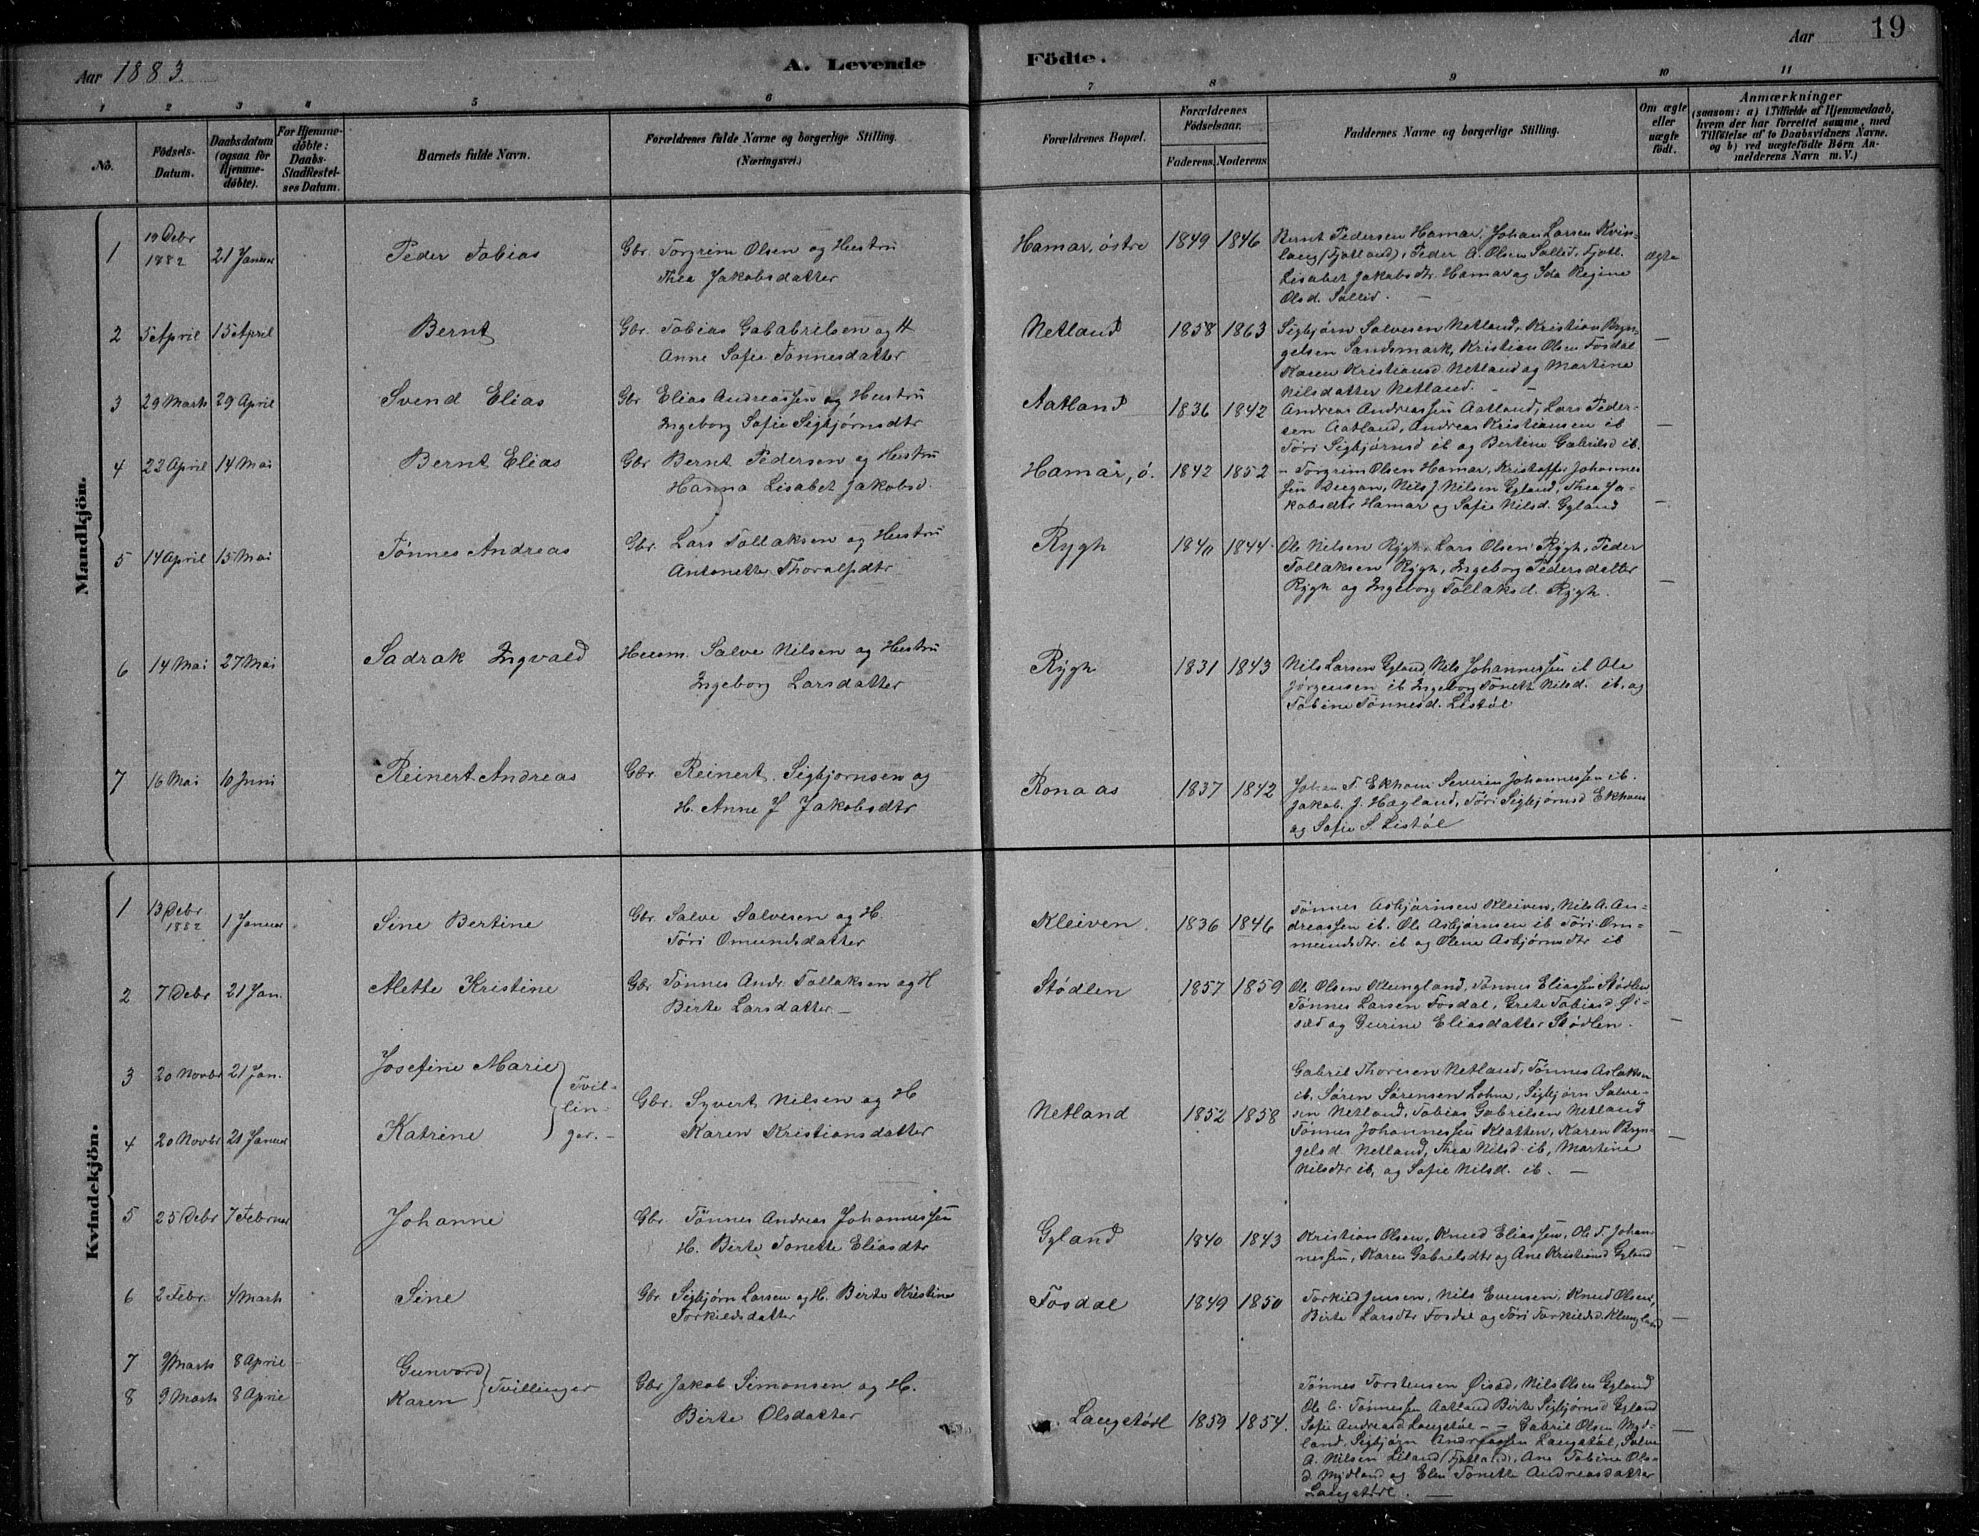 Aar 1883.
A. Levende
Födte.
Aar
19
1
2
3
4
5
6
7
8
9
10
11
No.
Födsels-
Datum.
Daabsdatum
(ogsaa for
Hjemme-
döbte).
For Hjemme-
döbte:
Daabs-
Stadfæstel-
ses Datum.
Barnets fulde Navn.
Forældrenes fulde Navne og borgerlige Stilling.
(Næringsvei.)
Forældrenes Bopæl.
Forældrenes
Födselsaar.
Faderens.
Moderens.
Faddernes Navne og borgerlige Stilling.
Om ægte
eller
uægte
födt.
Anmærkninger
(saasom: a) i Tilfælde af Hjemmedaab,
hvem der har forrettet samme, med
Tilföielse af to Daabsvidners Navne.
og b) ved uægtefödte Børn An-
melderens Navn m. V.)
Mandkjön.
1
19 Debr
1882
21 Januar
Peder Tobias
Gbr. Torgrim Olsen og Hustru
Thea Jakobsdatter
Hamar, østre
1849
1846
Bernt Pedersen Hamar, Johan Larsen Kvin-
laug (Fjotland), Peder A. Olsen Sollid, Fjotl.
Lisabet Jakobsdtr. Hamar og Ida Regine
Olsd. Sollid. —
ægte
2
5 April
15 April
Bernt
Gbr. Tobias Gababrilsen og H
Anne Sofie Tønnesdatter
Netland
1858
1863
Sigbjørn Salvesen Netland, Kristian Bryn-
gelsen Sandsmark, Kristian Olsen Fosdal
Karen Kristiansd Netland og Martine
Nilsdatter Netland. —
—
3
29 Marts
29 April
Svend Elias
Gbr Elias Andreassen og Hustru
Ingeborg Sofie Sigbjørnsdtr
Aatland
1836
1842
Andreas Andreassen Aatland, Lars Peder-
sen Aatland, Andreas Kristiansen ib
Tøri Sigbjørnsd ib og Bertine Gabrilsd ib.
—
4
22 April
14 Mai
Bernt Elias
Gbr Bernt Pedersen og Hustru
Hanna Lisabet Jakobsd.
Hamar, ø.
1842
1852
– Torgrim Olsen Hamar, Kristoffer Johannes
sen Dregan, Nils J. Nilsen Gyland, Thea Ja-
kobsdtr Hamar og Sofie Nilsd. Gyland
—
5
14 April
15 Mai
Tønnes Andreas
Gbr. Lars Tollaksen og Hustru
Antonette Thoralfsdtr
Rygh
1840
1844
Ole Nilsen Rygh, Lars Olsen Rygh, Peder
Tollaksen Rygh, Ingeborg Pedersdatter
Rygh og Ingeborg Tollaksd. Rygh.
—
6
14 Mai
27 Mai
Sadrak Ingvald
Husm. Salve Nilsen og Hustru
Ingeborg Larsdatter
Rygh
1831
1843
Nils Larsen Gyland, Nils Johannessen ib Ole
Jørgensen ib Ingeborg Tonett Nilsd. ib. og
Tobine Tønnesd. Listøl
7
16 Mai
10 Juni
Reinert Andreas
Gbr. Reinert Sigbjørnsen og
H. Anne J Jakobsdtr
Rona as
1837
1842
Johan T. Ekhom Severin Johannessen ib.
Jakob J. Hægland, Tøri Sigbjørnsd Ekhom
og Sofie S. Listøl
Kvindekjön.
1
13 Debr
1882
1 Januar
Sine Bertine
Gbr. Salve Salvesen og H.
Tøri Omundsdatter
Kleiven.
1836
1846
Tønnes Asbjørnsen Kleiven, Nils A. An-
dreassen ib. Ole Asbjørnsen ib Tøri Om-
mundsdtr. ib og Olene Asbjørnsdtr ib
—
2
7 Debr
21 Jan.
Alette Kristine
Gbr Tønnes Andr. Tollaksen og H
Birte Larsdatter —
Stødlen
1857
1859
Ole Olsen Klungland, Tønnes Eliassen Stødlen
Tønnes Larsen Fosdal, Grete Tobiasd. Øi-
sæd og Gurine Eliasdatter Stødlen.
—
3
20 Novbr
21 Jan.
Josefine Marie
4
20 Novbr
21 Januar
Katrine
Tvil-
lin-
ger. —
Gbr. Syvert Nilsen og H
Karen Kristiansdatter
Netland
1852
1858
Gabriel Thoresen Netland, Tønnes Aslaksn
ib. Søren Sørensen Lohne, Sigbjørn Salve-
sen Netland, Tobias Gabrilsen Netland
Tønnes Johannessen Klatten, Karen Bryn-
gelsd. Netland, Thea Nilsd. ib, Martine
Nilsdtr ib, og Sofie Nilsd. ib. —
—
5
25 Debr
7 Februar
Johanne
Gbr. Tønnes Andreas Johannessen
H. Birte Tonette Eliasdtr
Gyland
1840
1843
Kristian Olsen, Knud Eliassen, Ole T. Johan-
nessen, Karen Gabrielsdtr og Ane Kristiansd Gyland
—
6
2 Febr.
4 Marts
Sine
Gbr Sigbjørn Larsen og H. Birte Kristine
Torkildsdatter
Fosdal
1849
1850
Torkild Jensen, Nils Evensen, Knud Olsen,
Birte Larsdtr Fosdal og Tøri Torkildsd. Klungland
—
7
9 Marts
8 April
Gunvord
8
9 Marts
8 April
Karen
Tvillinger
Gbr Jakob Simonsen og H.
Birte Olsdatter
Langstøl
1859
1854.
Tønnes Torstensen Øisæd, Nils Olsen Gyland
Ole C. Tønnessen Aatland Birte Sigbjørnsd Gyland
Sofie Andreasd Langstøl — — Gabriel Olsen Myd-
land, Sigbjørn Andreassen Langstøl, Salve
A. Nilsen Liland (Fjotland), Ane Tobine Ols-
d. Mydland og Elen Tonette Andreasdatter
Langstøl. —
—